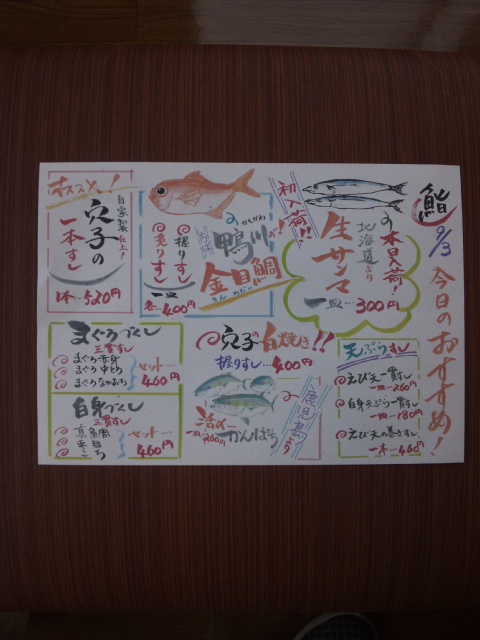 鮨
9/3
今日のおすすめ!
本日入荷!
北海道より
生サンマ
一皿…300円
初入荷!!
かもがわ
鴨川の!
金目鯛
きんめだい
握りすし
炙りすし
一皿
各…400円
オススメ!
自家製仕上!
穴子の
一本すし
1本…520円
天ぷらすし
えび天一貫すし
一皿…260円
白身天ぷら一貫すし
一皿…180円
えび天の巻きすし
一本…460円
穴子の白焼き!!
握りすし…400円
鹿児島より
活〆
かんぱち
一皿…260円
まぐろづくし
三貫すし
まぐろ赤身
まぐろ中とろ
まぐろなかおち
セット…
460円
白身づくし
三貫すし
真鯛
セット…
460円